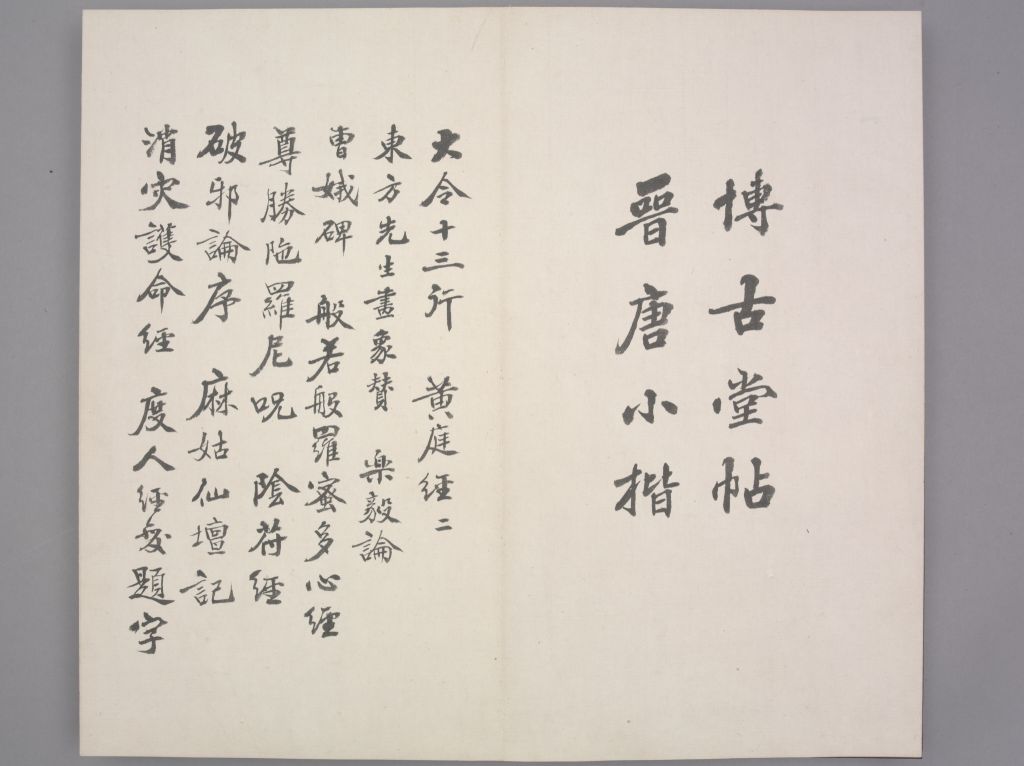 博古堂帖
晉唐小楷
大令十三行 黄庭經二
東方先生畫象贊 樂毅論
曹娥碑 般若般羅蜜多心經
尊勝陁羅尼呪 陰苻經
破邪論序 麻姑仙壇記
消灾護命經 度人經變題字